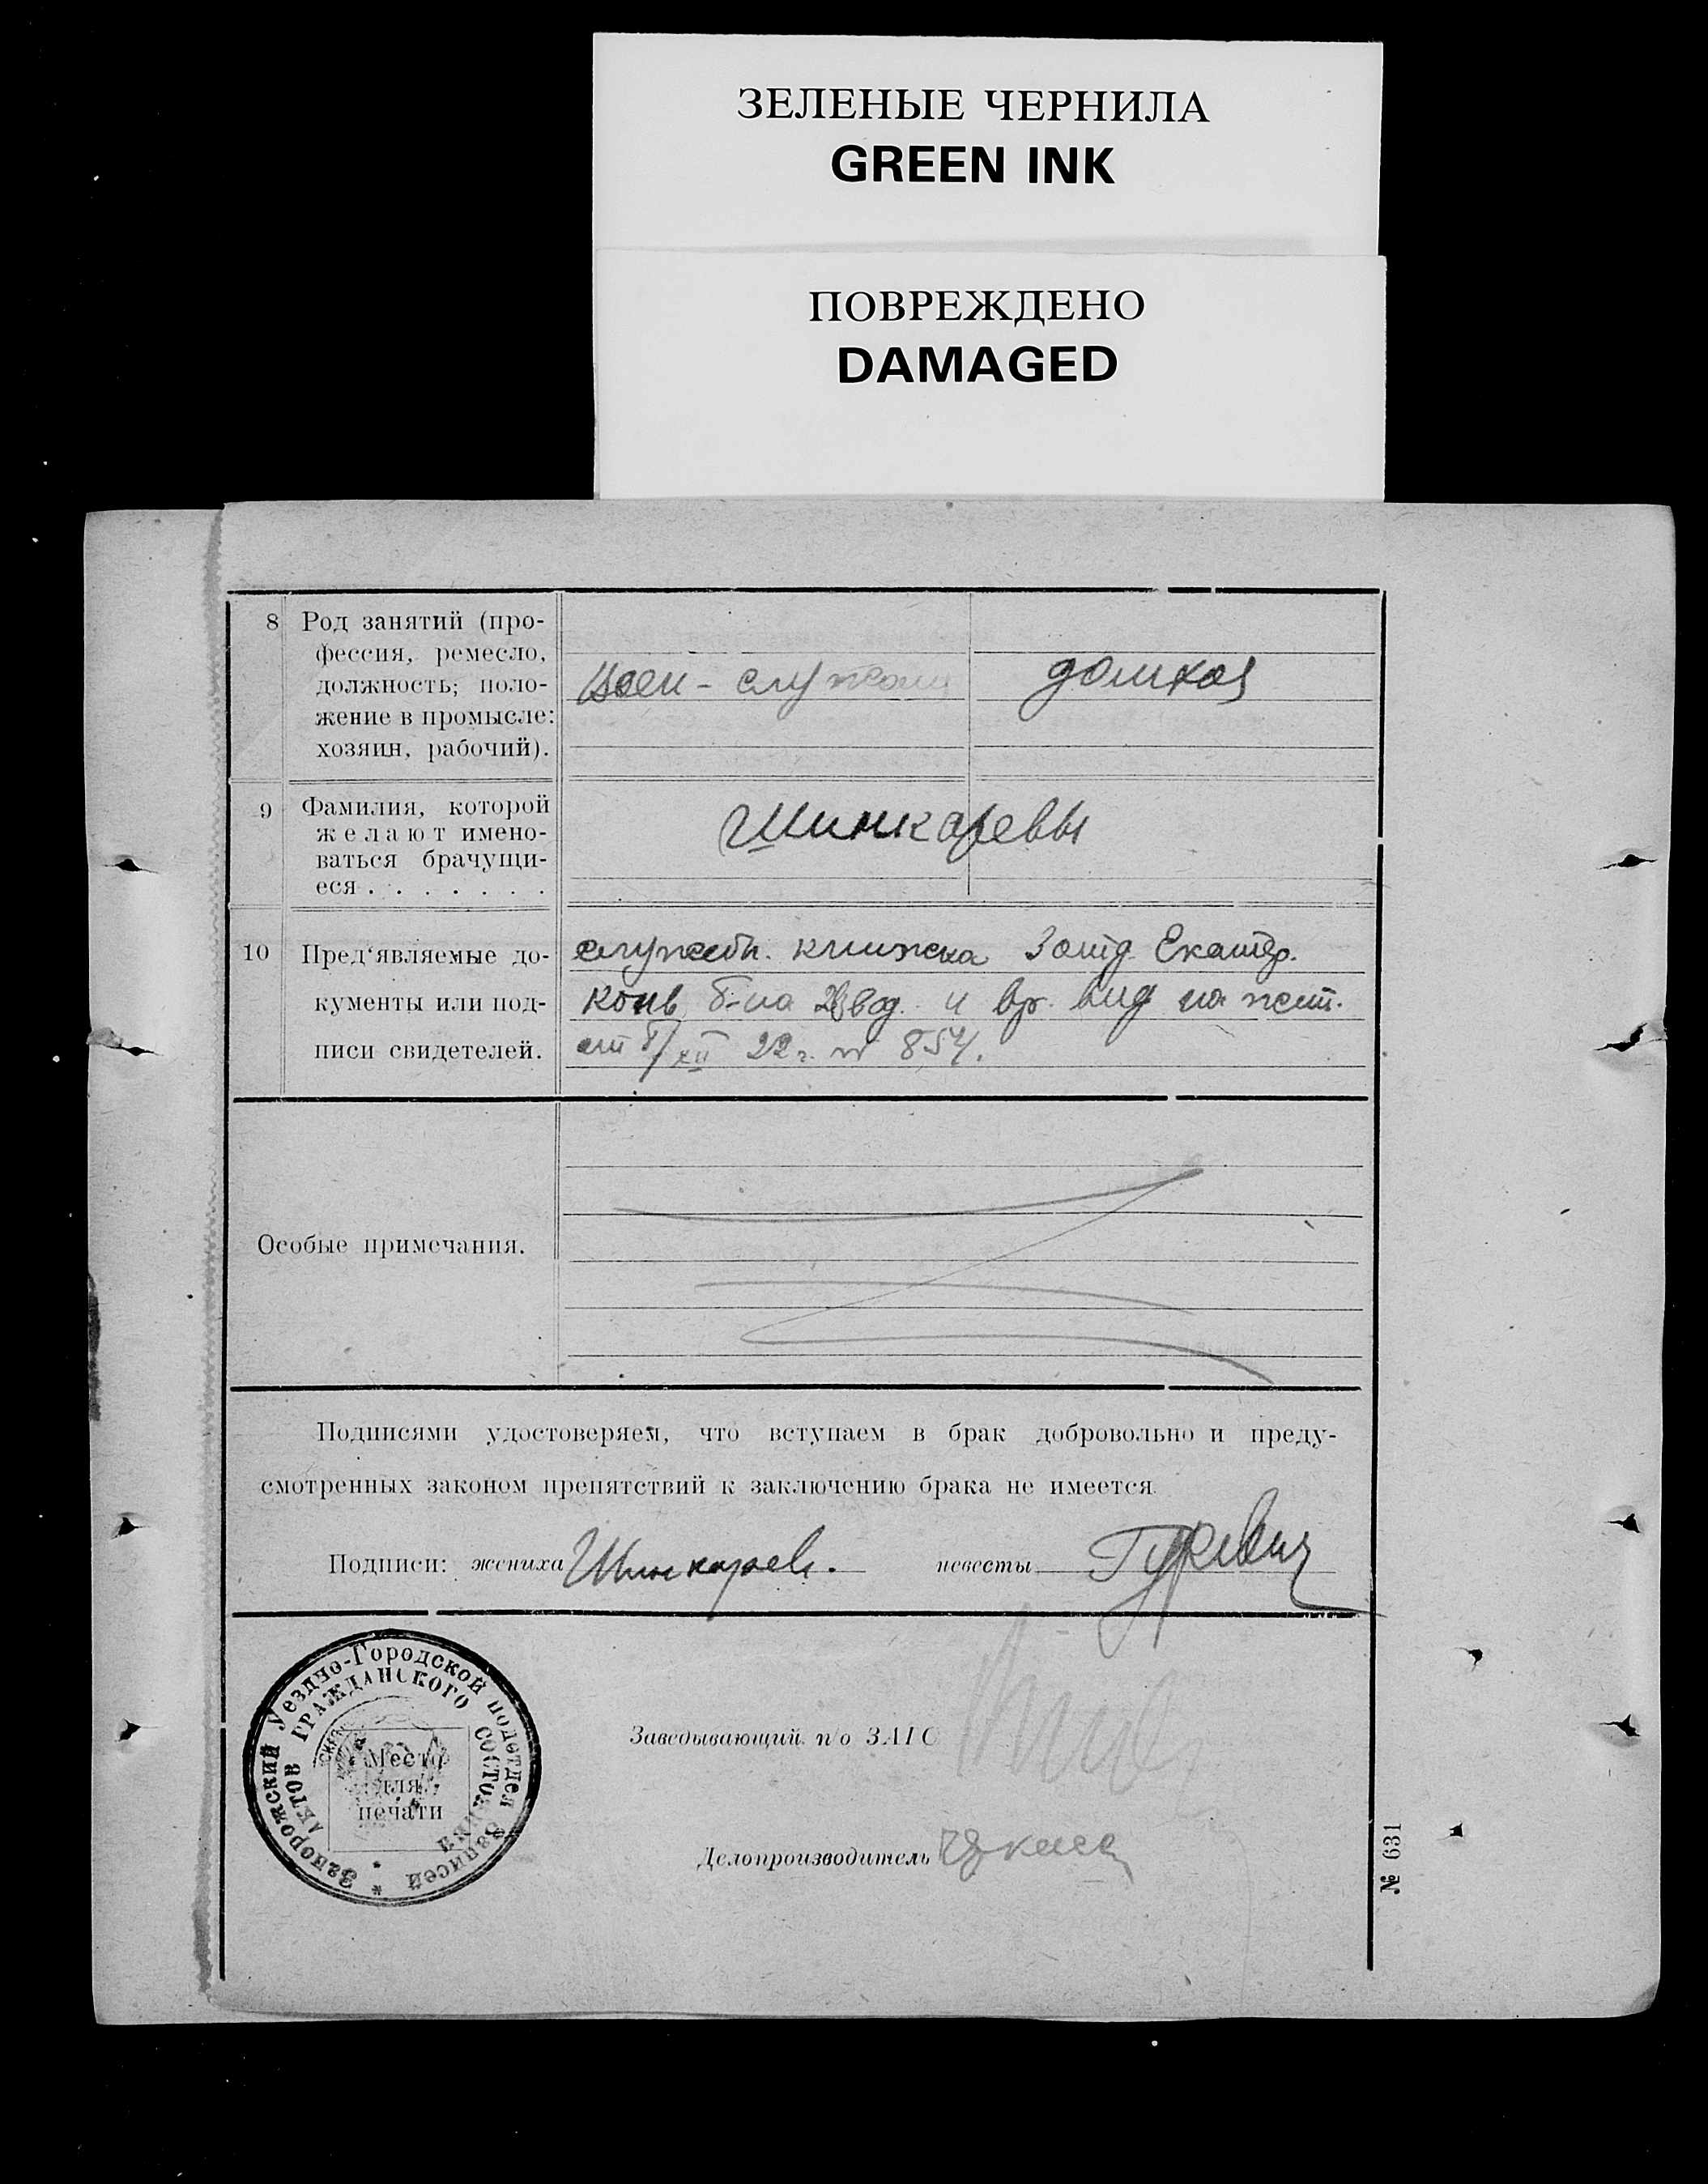 ЗЕЛЕНЫЕ ЧЕРНИЛА
GREEN INK
ПОВРЕЖДЕНО
DAMAGED
8 Род занятий (про-
фессия, ремесло,
должность; поло-
жение в промысле:
хозяин, рабочий).
Воен-служащ
домхоз
9 Фамилия, которой
желают имено-
ваться брачущи-
еся . . . . . . .
Шинкаревы
10 Пред‘являемые до-
кументы или под-
писи свидетелей.
служебн. книжка Екатер.
Конв. б-на и вр. вид на жит.
от 22 г. № 854.
Особые примечания.
Подписями удостоверяем, что вступаем в брак добровольно и преду-
смотренных законом препятствий к заключению брака не имеется.
Подписи: жениха Шинкарев. невесты Гуревич
Запорожский Уездно-Городской подотдел Записей
АКТОВ ГРАЖДАНСКОГО СОСТОЯНИЯ
Место
для
печати
Заведывающий п/о ЗАГС
Делопроизводитель
№ 631